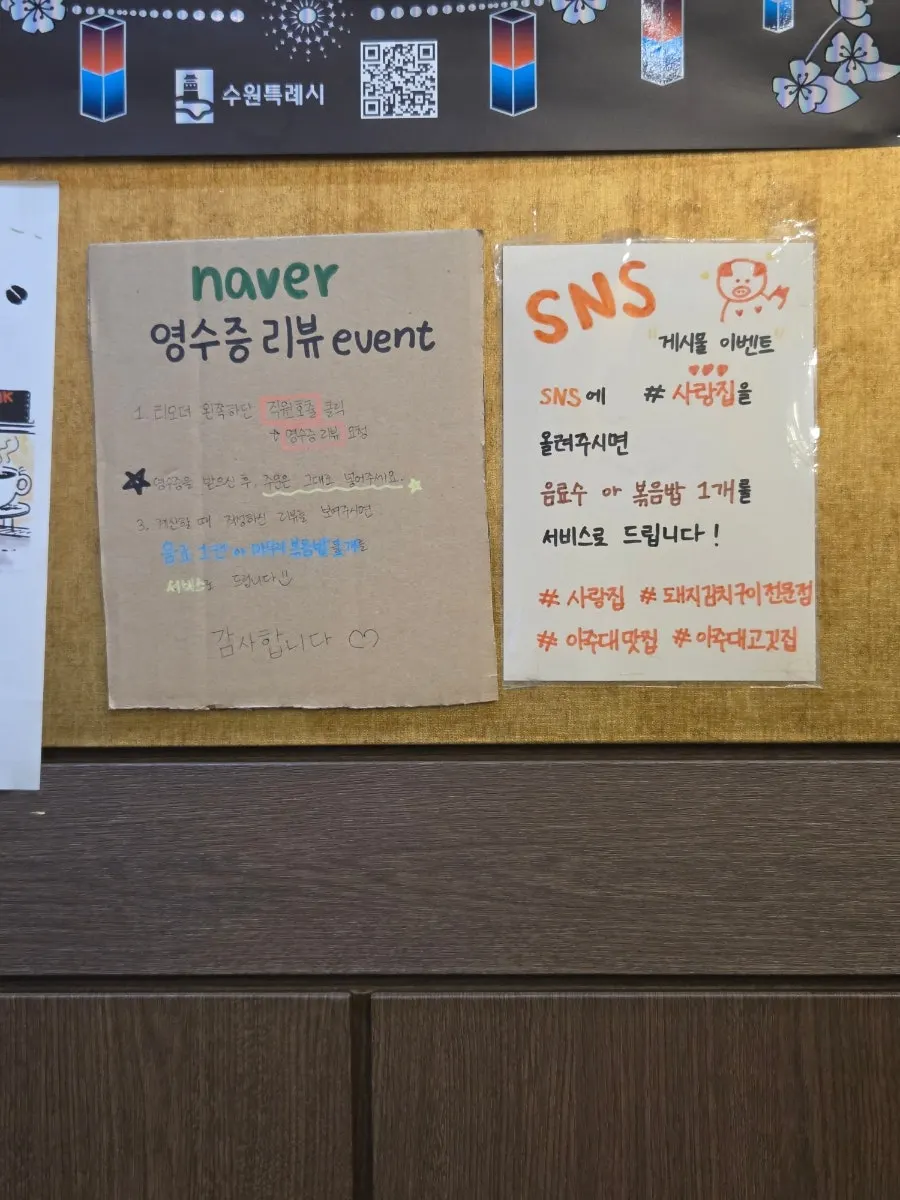 수원특례시
naver
영수증 리뷰 event
1. 티오더 왼쪽하단 직원호출 클릭
+ 영수증 리뷰 요청
영수증을 받으신 후, 주문은 그대로 넣어주세요.
3. 계산할 때 작성하신 리뷰를 보여주시면
음료 1캔 or 마무리 볶음밥 1개를
서비스로 드립니다
감사합니다
SNS
"게시물 이벤트"
SNS에 #사랑집을
올려주시면
음료수 or 볶음밥 1개를
서비스로 드립니다!
#사랑집 #돼지김치구이전문점
#아주대맛집 #아주대고깃집